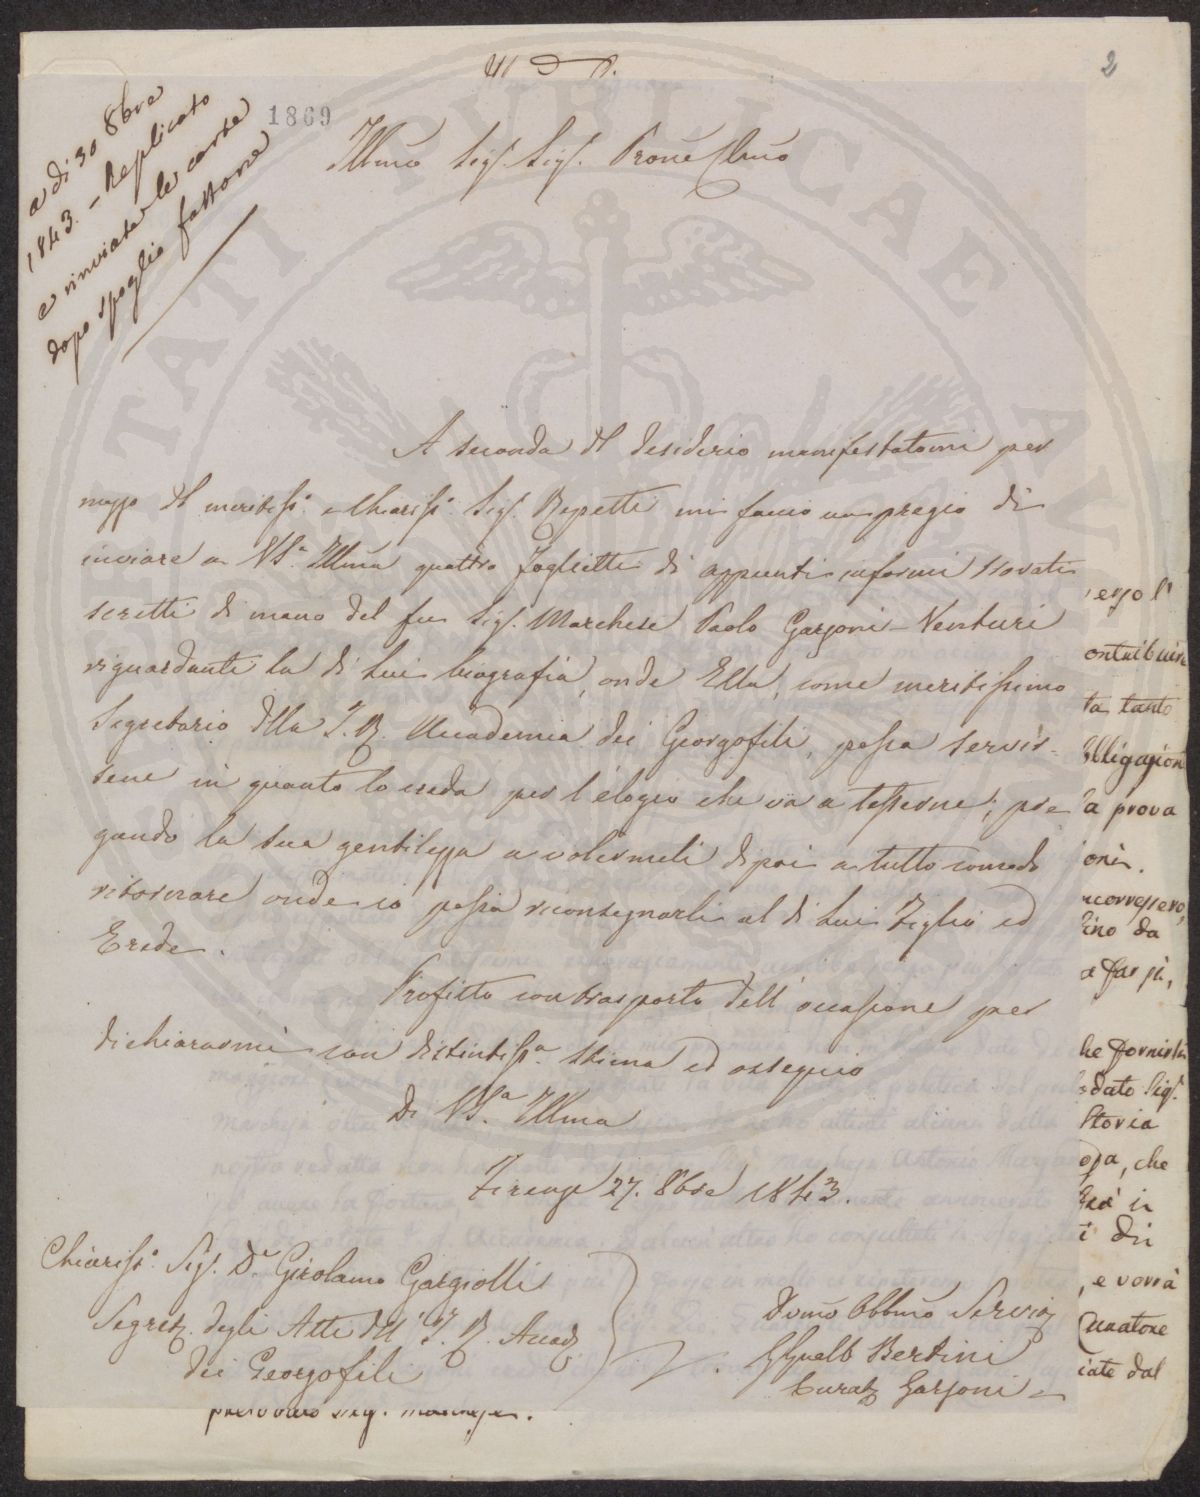 2
1869
a dì 30 8bre
1843. - Replicato
e rinviate le carte
dopo spoglio fattone
Illmo Sigr. Sigr. Prone Clmo
A seconda del desiderio manifestatomi per
mezzo del meritiss.o e Chiariss.o Sigr. Repetti mi faccio un pregio di
inviare a VS.a Illma quattro foglietti di appunti informi trovati
scritti di mano del fu Sigr. Marchese Paolo Garzoni-Venturi
riguardanti la di Lui biografia, onde Ella, come meritissimo
Segretario della I. R. Accademia dei Georgofili, possa servir-
sene in quanto lo creda per l'elogio che va a tesserne; pre
gando la sua gentilezza a volermeli dipoi a tutto comodo
ritornare onde io possa riconsegnarli al di Lui Figlio ed
Erede.
Profitto con trasporto dell'occasione per
dichiararmi con distintiss.a stima ed ossequio
Di VS.a Illma
Firenze 27. 8bre 1843.
Chiariss.o Sigr. Dr. Girolamo Gargiolli
Segret. degli Atti dell'I. R. Accad.
dei Georgofili
Devmo Obbmo Servit.
Guelfo Bertini
Curat. Garzoni
verso l'
ontribuire
ta tanto
bbligazion
la prova
oni.
ncorressero,
fino da
a far sì,
he fornisti
dato Sigr.
Storia
oza, che
in
i dii
, e vorrà
Curatore
iate dal